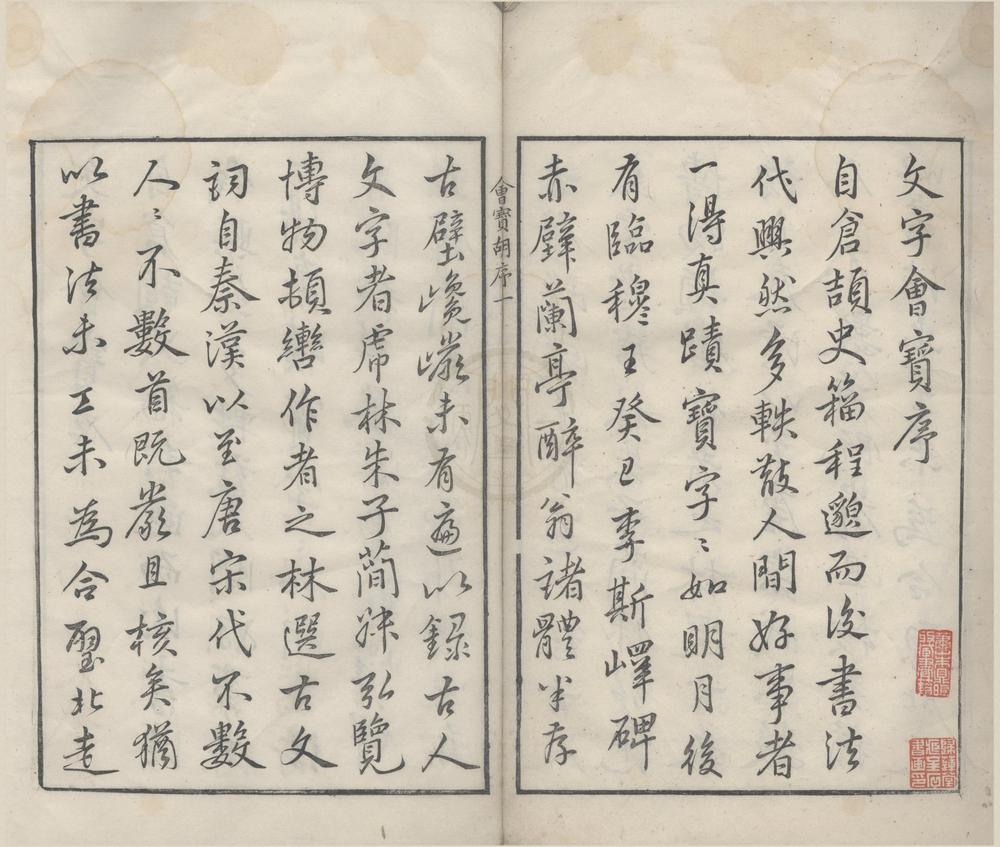 文字會寶序
自倉頡史籀程邈而後書法
代興然多軼散人間好事者
一得真蹟寶字〻如明月後
有臨穆王癸巳李斯嶧碑
赤壁蘭亭醉翁諸體半存
會寶胡序一
古壁巉巖未有適以錄古人
文字者虎林朱子簡
弘覽
博物頡
作者之林選古文
詞自秦漢以至唐宋代不數
人〻不數首既嚴且核矣猶
以書法未工未為合璧北走